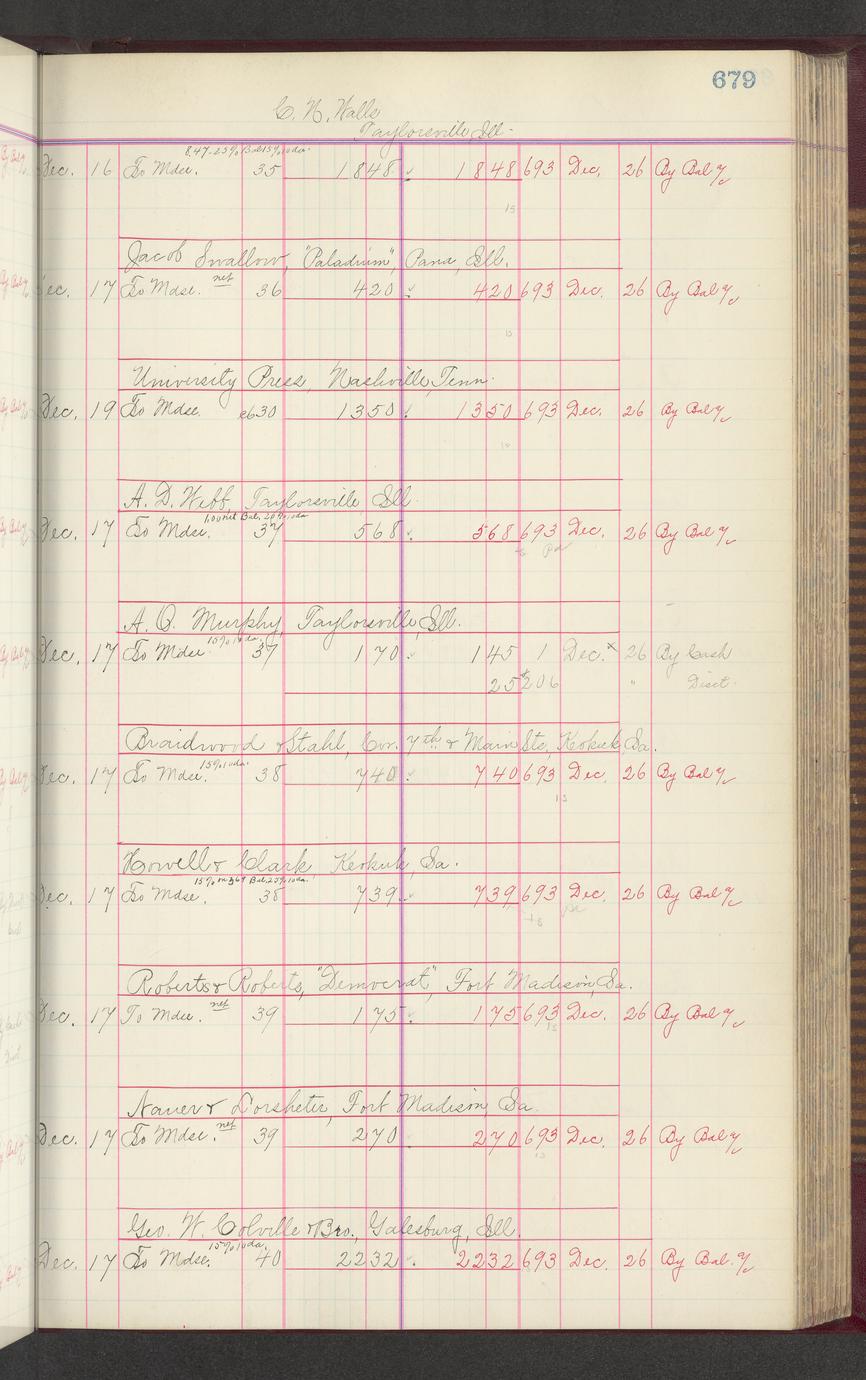 679
C. N. Walls
Taylorsville Ill.
8.47-25% Bal 15% 10 da.
Dec. 16 To Mdse. 35 1848 1848 693 Dec. 26 By Bal
15
Jacob Swallow, "Paladium", Pana, Ill.
Dec. 17 To Mdse. net 36 420 420 693 Dec. 26 By Bal
15
University Press, Nashville, Tenn.
Dec. 19 To Mdse. 630 1350 1350 693 Dec. 26 By Bal
A. D. Webb, Taylorsville Ill.
1.00 net Bal. 20% 10 da
Dec. 17 To Mdse. 37 568 568 693 Dec. 26 By Bal
A. O. Murphy, Taylorsville, Ill.
15% 10 da.
Dec. 17 To Mdse 37 170 145 1 Dec. x 26 By Cash
25 206 " Disct.
Braidwood & Stahl, Cor. 7th & Main Sts, Keokuk, Ia.
15% 10 da.
Dec. 17 To Mdse. 38 740 740 693 Dec. 26 By Bal
15
Howell & Clark, Keokuk, Ia.
15% on 369 Bal. 25% 10 da.
Dec. 17 To Mdse. 38 739 739 693 Dec. 26 By Bal
Roberts & Roberts, "Democrat", Fort Madison, Ia.
Dec. 17 To Mdse. net 39 175 175 693 Dec. 26 By Bal
15
Nauer & Dorsheter, Fort Madison, Ia.
Dec. 17 To Mdse. net 39 270 270 693 Dec. 26 By Bal
Geo. W. Colville & Bro., Galesburg, Ill.
15% 10 da.
Dec. 17 To Mdse. 40 2232 2232 693 Dec. 26 By Bal.